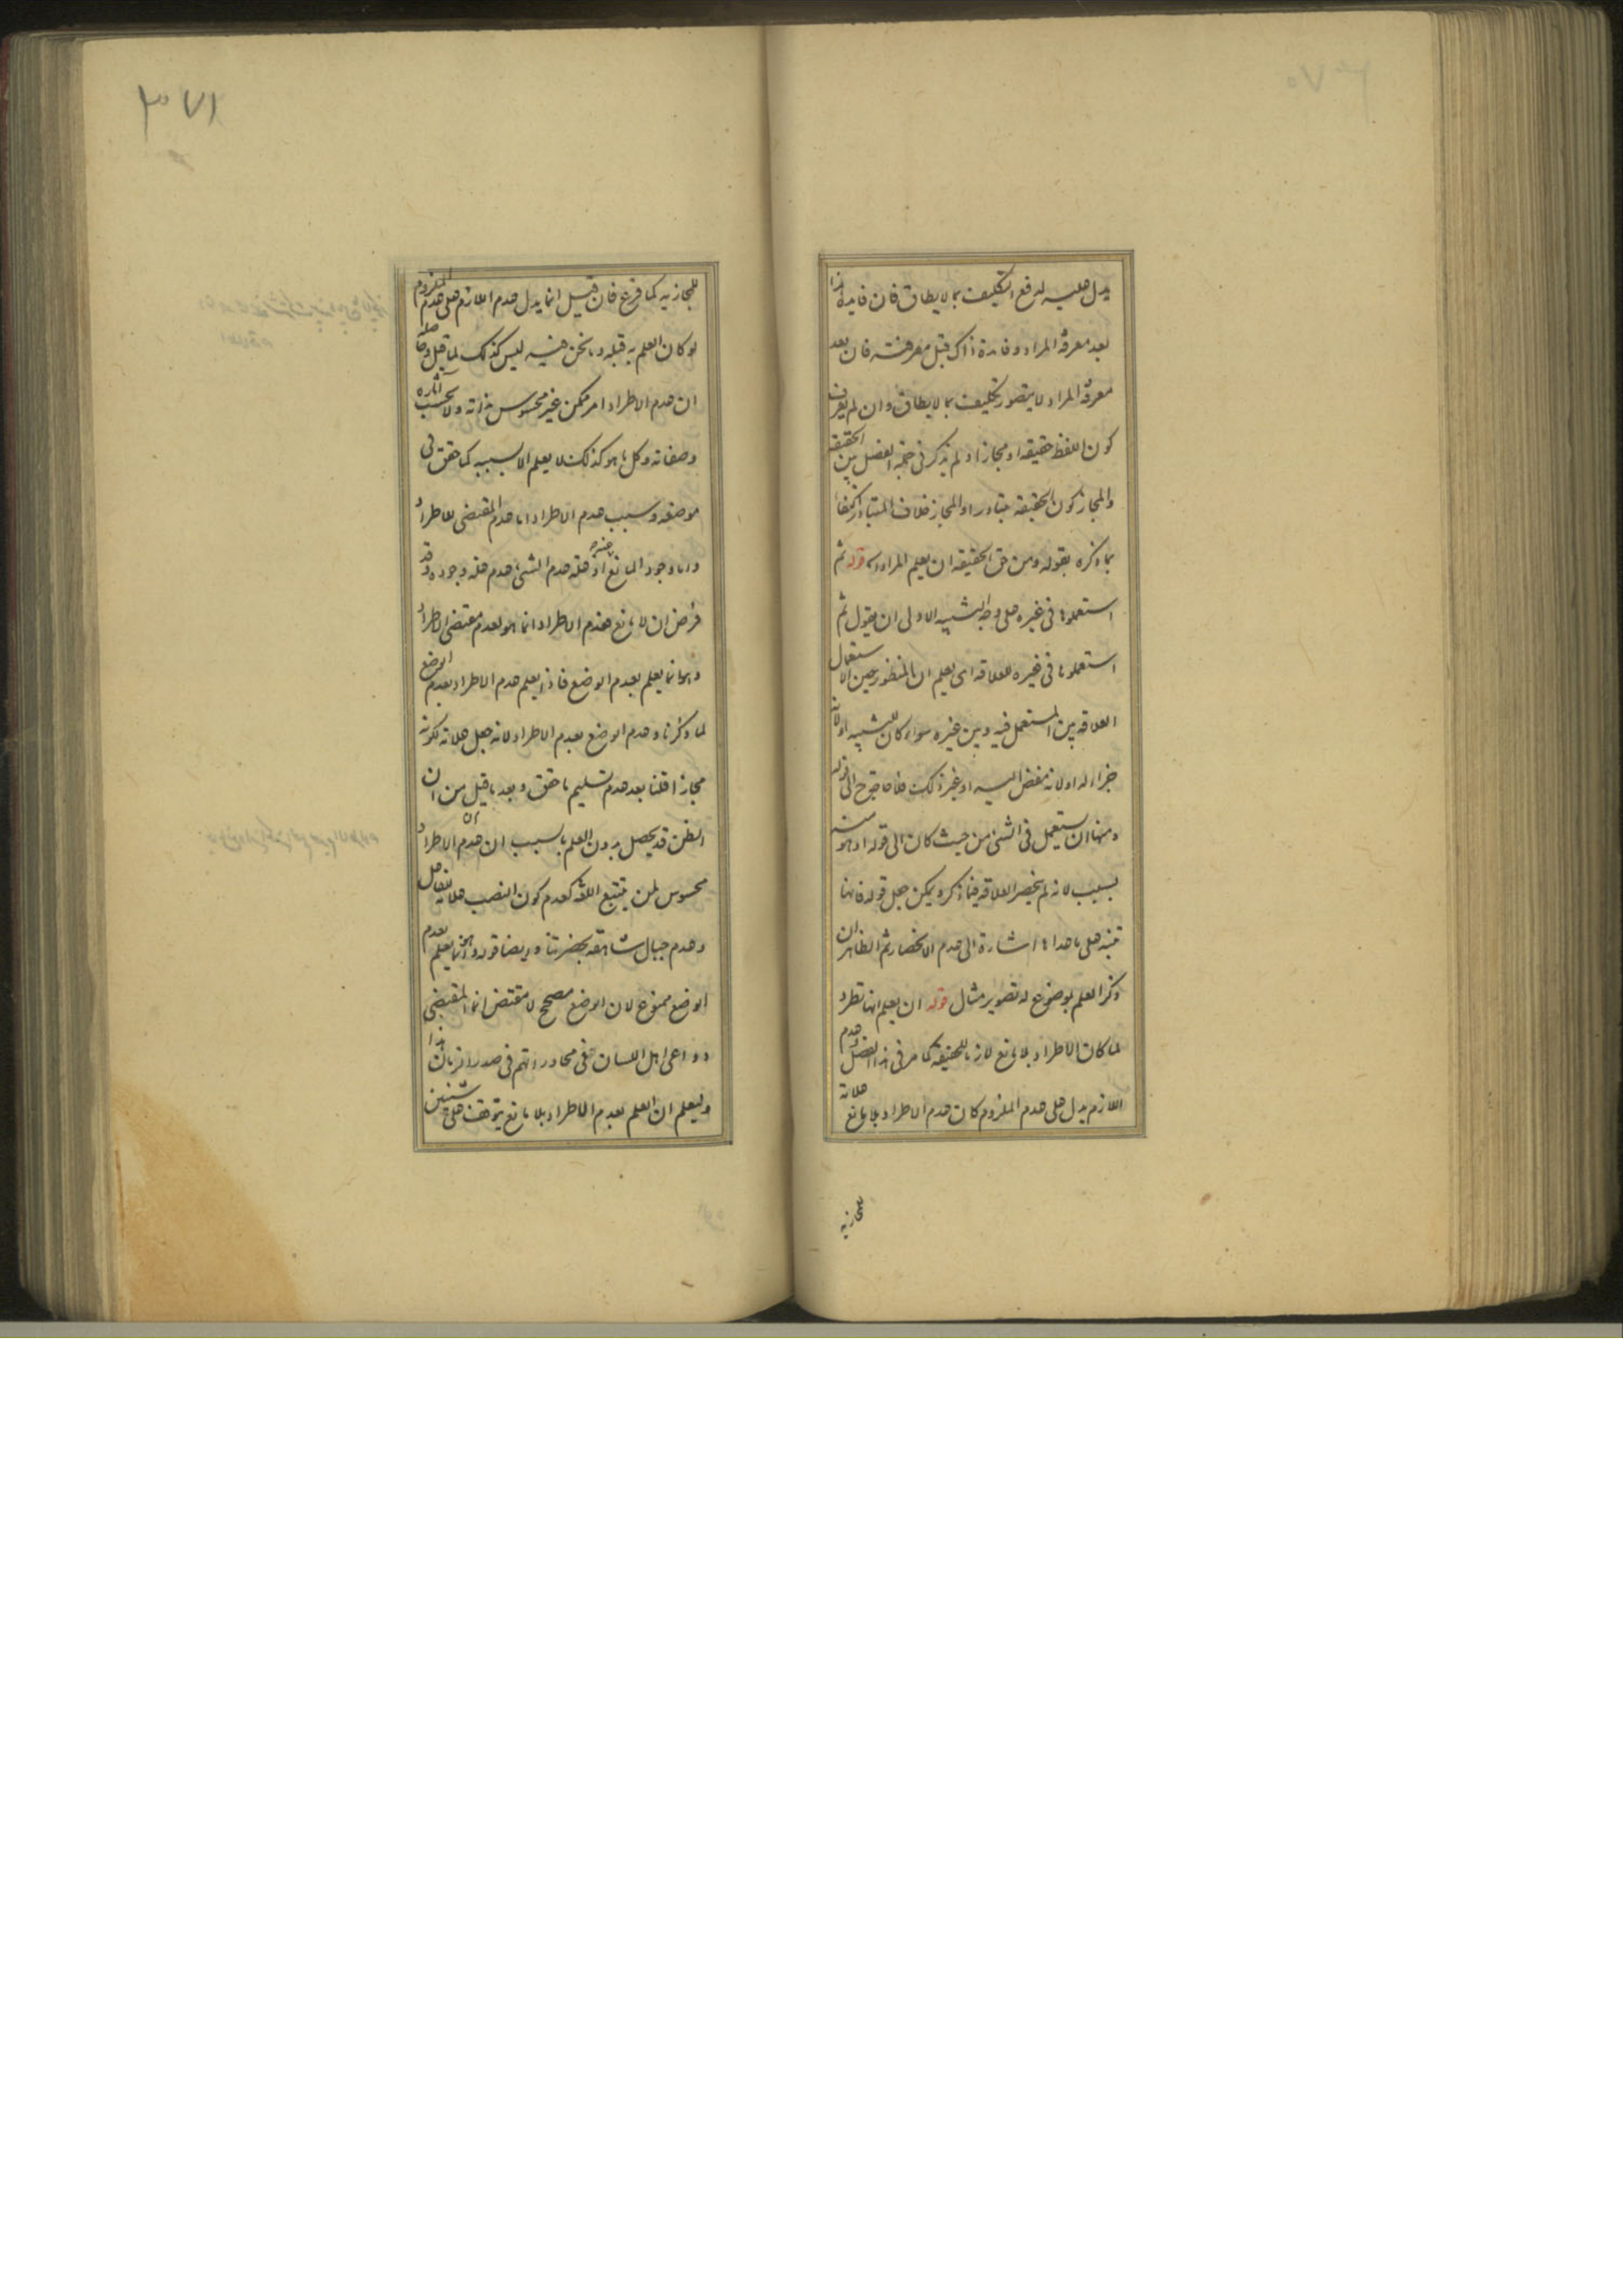 يدل عليه لدفع التكليف بما لا يطاق فان فايدة هذا
بعد معرفة المراد وفايدة ذاك قبل معرفته فان بعد
معرفة المراد لا يتصور تكليف بما لا يطاق وان لم يعرف
كون اللفظ حقيقة او مجازا ولم يذكر في الفصل بين الحقيقة
والمجاز كون الحقيقة متبادرا والمجاز خلاف المتبادر اكتفاء
بما ذكره بقوله ومن حق الحقيقة ان يعلم المراد قوله ثم
استعملوها في غيره على وجه التشبيه الاولى ان يقول ثم
استعملوها في غيره للعلاقة اى يعلم ان المنظور حين الاستعمال
العلاقة بين المستعمل فيه وبين غيره سواء كان للتشبيه او لانه
جزاء له او لانه مفض اليه او غير ذلك فلا حاجة الى قوله
ومنها ان يستعمل في الشئ من حيث كان الى قوله او هو منه
بسبب لانه لم ينحصر العلاقة فيما ذكر ويمكن جعل قوله فانها
تنبه على ما عداها اشارة الى عدم الانحصار ثم الظاهر ان
ذكر العلم بوضوع له تصوير مثال قوله ان يعلم انها تطرد
لما كان الاطراد بلا مانع لازما للحقيقة كما مر في هذا الفصل وعدم
اللازم يدل على عدم الملزوم كان عدم الاطراد بلا مانع علامة
للمجازية
٣٧١
للمجازية كما فرع فان قيل انما يدل عدم اللازم على عدم الملزوم
لو كان العلم به قبله وما نحن فيه ليس كذلك لما قيل وحاصله
ان عدم الاطراد امر ممكن غير محسوس بذاته ولا بحسب آثاره
وصفاته وكل ما هو كذلك لا يعلم الا بسببه كما حقق في
موضعه وسبب عدم الاطراد اما عدم المقتضى للاطراد
واما وجود المانع عنه اذ علة عدم الشئ عدم علة وجوده وقد
فرض ان لا مانع فعدم الاطراد انما هو لعدم مقتضى الاطراد
وهو انما يعلم بعدم الوضع فاذن يعلم عدم الاطراد بعدم الوضع
لما ذكرنا وعدم الوضع بعدم الاطراد لانه جعل علامة لكونه
مجازا قلنا بعد عدم تسليم ما حقق وبعد ما قيل من ان
الظن قد يحصل بدون العلم بالسبب ان عدم الاطراد
محسوس لمن يتتبع اللغة كعدم كون النصب علامة للفاعل
وعدم جبال شاهقة بحضرتنا وايضا قوله وهو انما يعلم بعدم
الوضع ممنوع لان الوضع مصحح لا مقتض انما المقتضى
دواعى اهل اللسان في محاوراتهم في صدر الزمان هذا
وليعلم ان العلم بعدم الاطراد بلا مانع يتوقف على شيئين